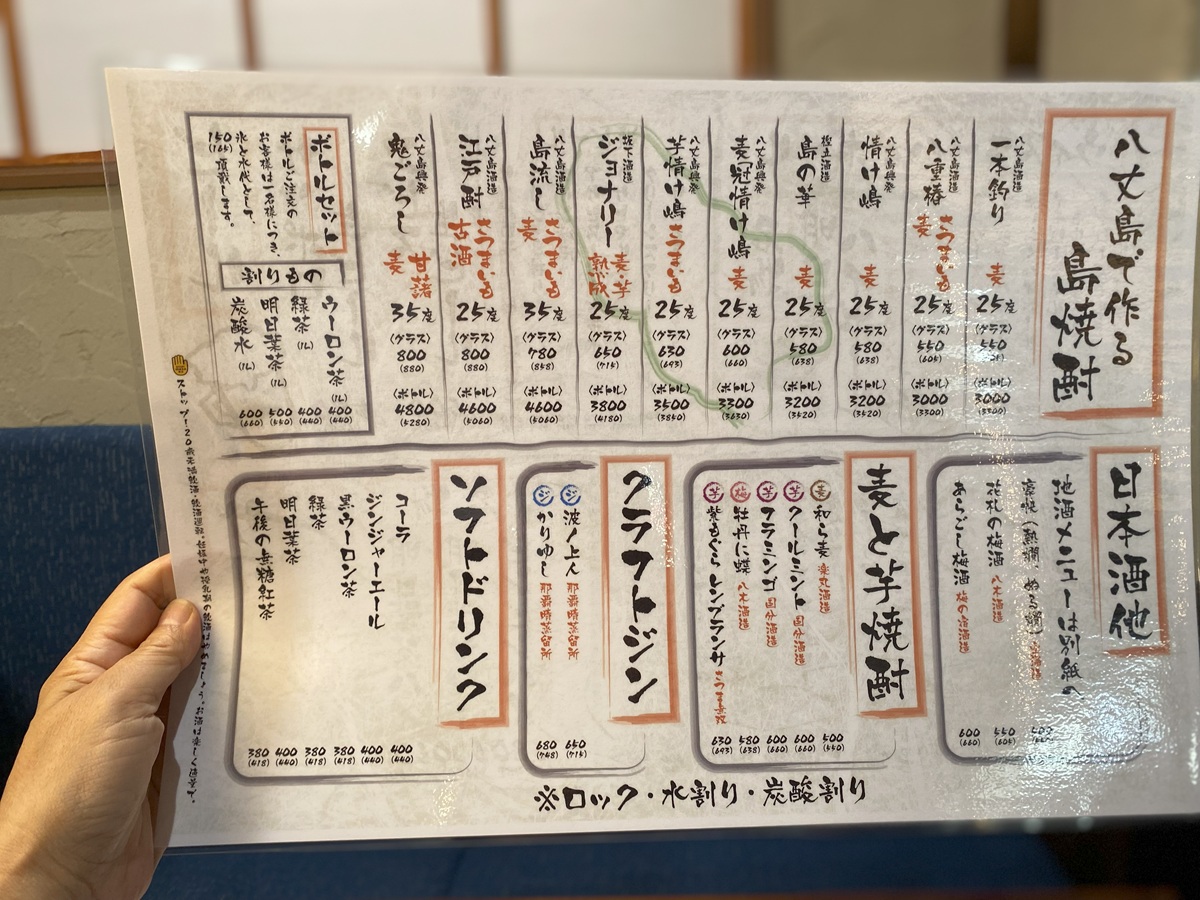 八丈島で作る
島焼酎
八丈島酒造
一本釣り 麦 25度 〈グラス〉 550 〈ボトル〉 3000 (3300)
八丈島酒造
八重椿 さつまいも 麦 25度 〈グラス〉 550 (605) 〈ボトル〉 3000 (3300)
八丈島興発
情け嶋 麦 25度 〈グラス〉 580 (638) 〈ボトル〉 3200 (3520)
樫立酒造
島の華 麦 25度 〈グラス〉 580 (638) 〈ボトル〉 3200 (3520)
八丈島興発
麦冠情け嶋 麦 25度 〈グラス〉 600 (660) 〈ボトル〉 3300 (3630)
八丈島興発
芋情け嶋 さつまいも 25度 〈グラス〉 630 (693) 〈ボトル〉 3500 (3850)
坂下酒造
ジョナリー 麦・芋 熟成 25度 〈グラス〉 650 (715) 〈ボトル〉 3800 (4180)
八丈島酒造
島流し さつまいも 麦 35度 〈グラス〉 780 (858) 〈ボトル〉 4600 (5060)
八丈島興発
江戸酎 さつまいも 古酒 25度 〈グラス〉 800 (880) 〈ボトル〉 4600 (5060)
八丈島興発
鬼ごろし 甘藷 麦 35度 〈グラス〉 800 (880) 〈ボトル〉 4800 (5280)
ボトルセット
ボトルご注文の
お客様は一名様につき、
氷と水代として、
150(165)頂戴します。
割りもの
ウーロン茶(1L) 400 (440)
緑茶(1L) 400 (440)
明日葉茶(1L) 500 (550)
炭酸水(1L) 600 (660)
日本酒他
地酒メニューは別紙へ
花札の梅酒 八木酒造 550 (605)
あらごし梅酒 梅の宿酒造 600 (660)
麦と芋焼酎
麦 和ら麦 楽丸酒造 500 (550)
芋 クールミント 国分酒造 600 (660)
芋 フラミンゴ 国分酒造 600 (660)
梅 牡丹に蝶 八木酒造 580 (638)
芋 紫もぐらレンブランサ さつま無双 630 (693)
クラフトジン
ジ 波ノ上人 那覇蒸留所 650 (715)
ジ かりゆし 那覇蒸留所 680 (748)
ソフトドリンク
コーラ 400 (440)
ジンジャーエール 400 (440)
黒ウーロン茶 380 (418)
緑茶 380 (418)
明日葉茶 400 (440)
午後の無糖紅茶 380 (418)
※ロック・水割り・炭酸割り
ストップ!20歳未満飲酒・飲酒運転。妊娠中や授乳期の飲酒はやめましょう。お酒は楽しく適量で。